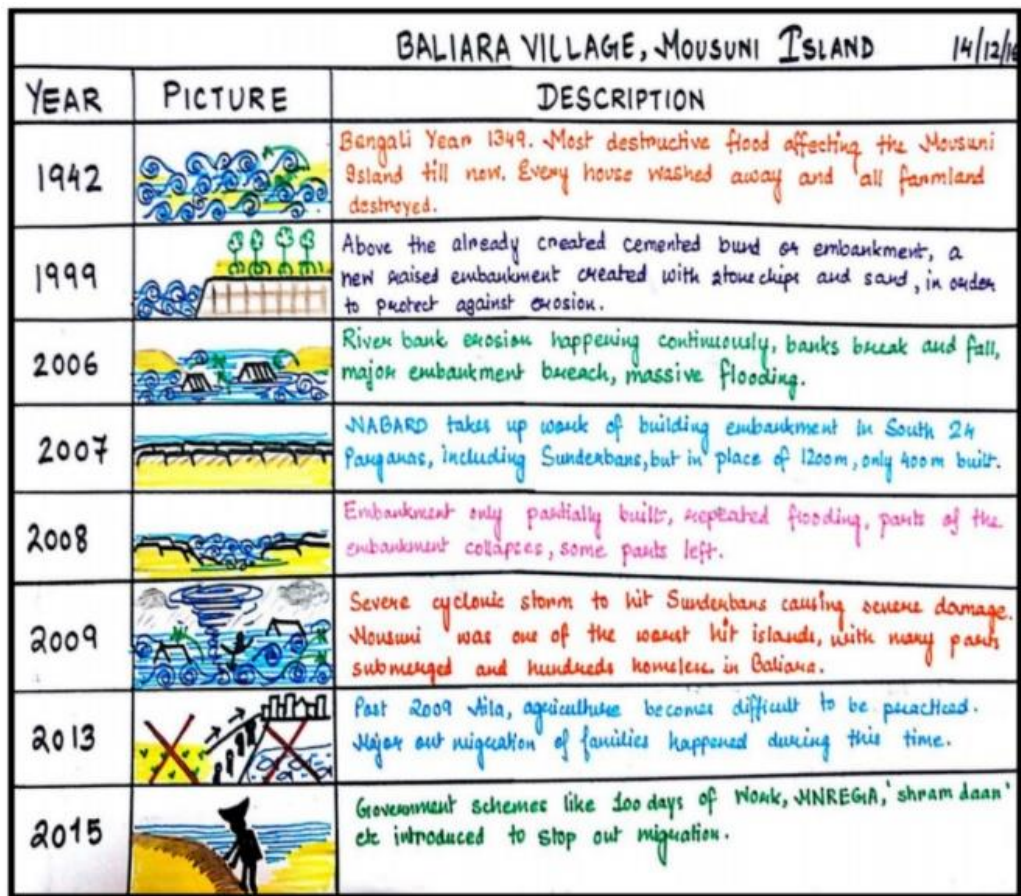 BALIARA VILLAGE, MOUSUNI ISLAND 14/12/16
YEAR PICTURE DESCRIPTION
1942
Bengali Year 1349. Most destructive flood affecting the Mousuni
Island till now. Every house washed away and all farmland
destroyed.
1999
Above the already created cemented bund or embankment, a
new raised embankment created with stone chips and sand, in order
to protect against erosion.
2006
River bank erosion happening continuously, banks break and fall,
major embankment breach, massive flooding.
2007
NABARD takes up work of building embankment in South 24
Parganas, including Sunderbans, but in place of 1200m, only 400m built.
2008
Embankment only partially built, repeated flooding, parts of the
embankment collapses, some parts left.
2009
Severe cyclonic storm to hit Sunderbans causing severe damage.
Mousuni was one of the worst hit islands, with many parts
submerged and hundreds homeless in Baliara.
2013
Post 2009 Aila, agriculture becomes difficult to be practiced.
Major out migration of families happened during this time.
2015
Government schemes like 100 days of Work, MNREGA, 'shram daan'
etc introduced to stop out migration.